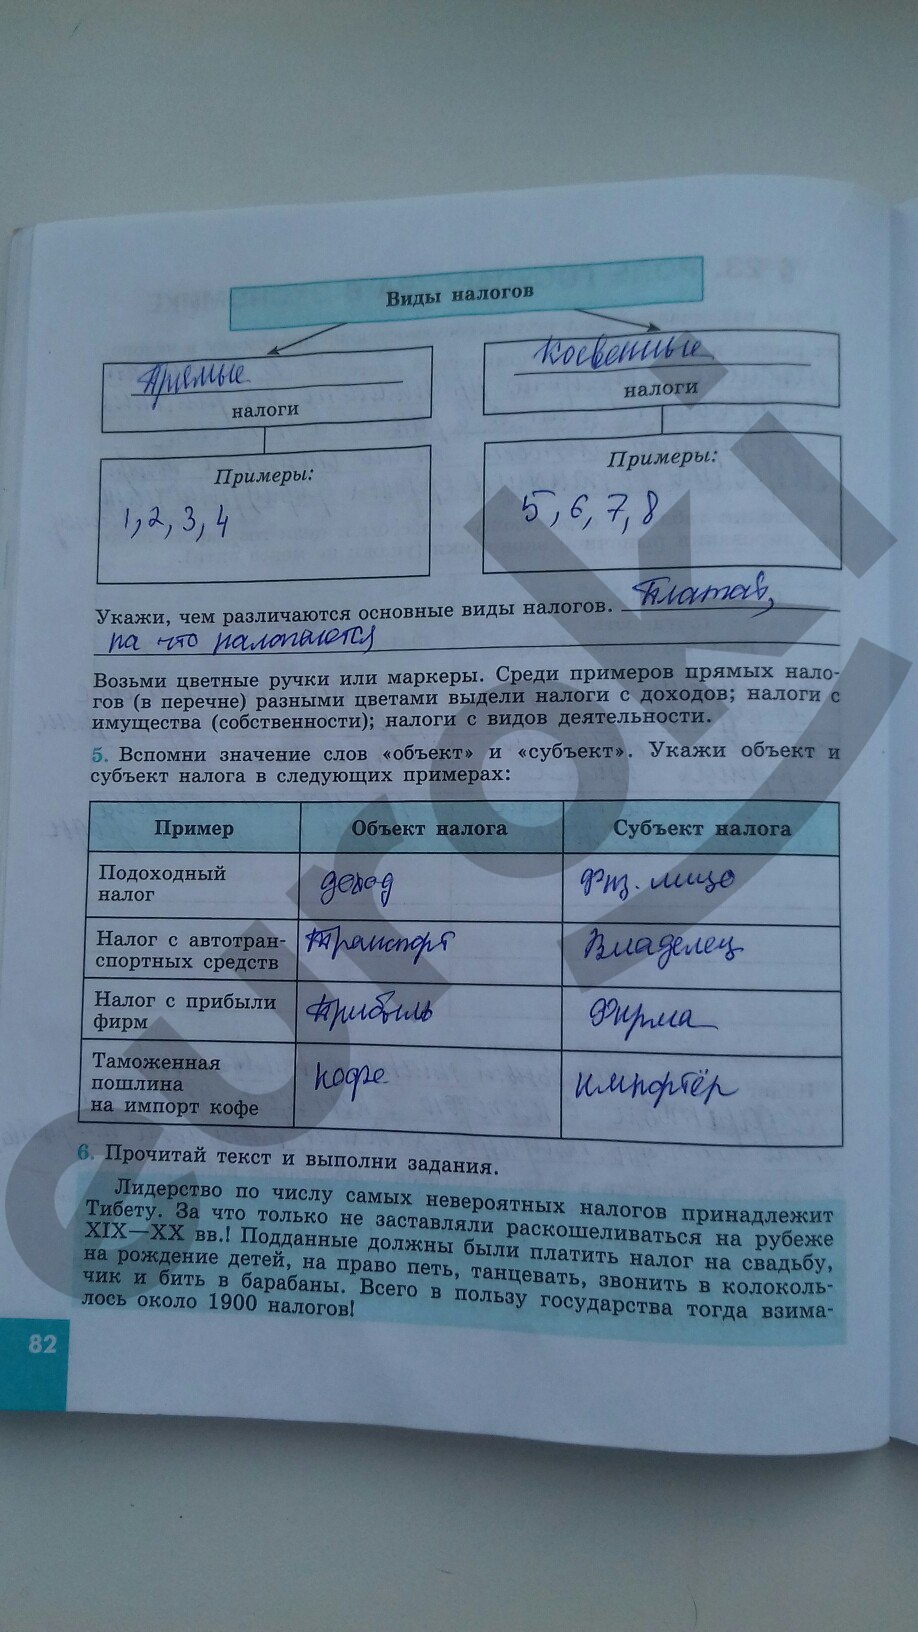 Виды налогов
Прямые
налоги
Косвенные
налоги
Примеры:
1, 2, 3, 4
Примеры:
5, 6, 7, 8
Укажи, чем различаются основные виды налогов. Платой,
на что налогаются
Возьми цветные ручки или маркеры. Среди примеров прямых нало-
гов (в перечне) разными цветами выдели налоги с доходов; налоги с
имущества (собственности); налоги с видов деятельности.
5. Вспомни значение слов «объект» и «субъект». Укажи объект и
субъект налога в следующих примерах:
Пример Объект налога Субъект налога
Подоходный
налог
доход
Физ. лицо
Налог с автотран-
спортных средств
Транспорт
Владелец
Налог с прибыли
фирм
Прибыль
Фирма
Таможенная
пошлина
на импорт кофе
Кофе
импортёр
6. Прочитай текст и выполни задания.
Лидерство по числу самых невероятных налогов принадлежит
Тибету. За что только не заставляли раскошеливаться на рубеже
XIX—XX вв.! Подданные должны были платить налог на свадьбу,
на рождение детей, на право петь, танцевать, звонить в колоколь-
чик и бить в барабаны. Всего в пользу государства тогда взима-
лось около 1900 налогов!
82
euroki